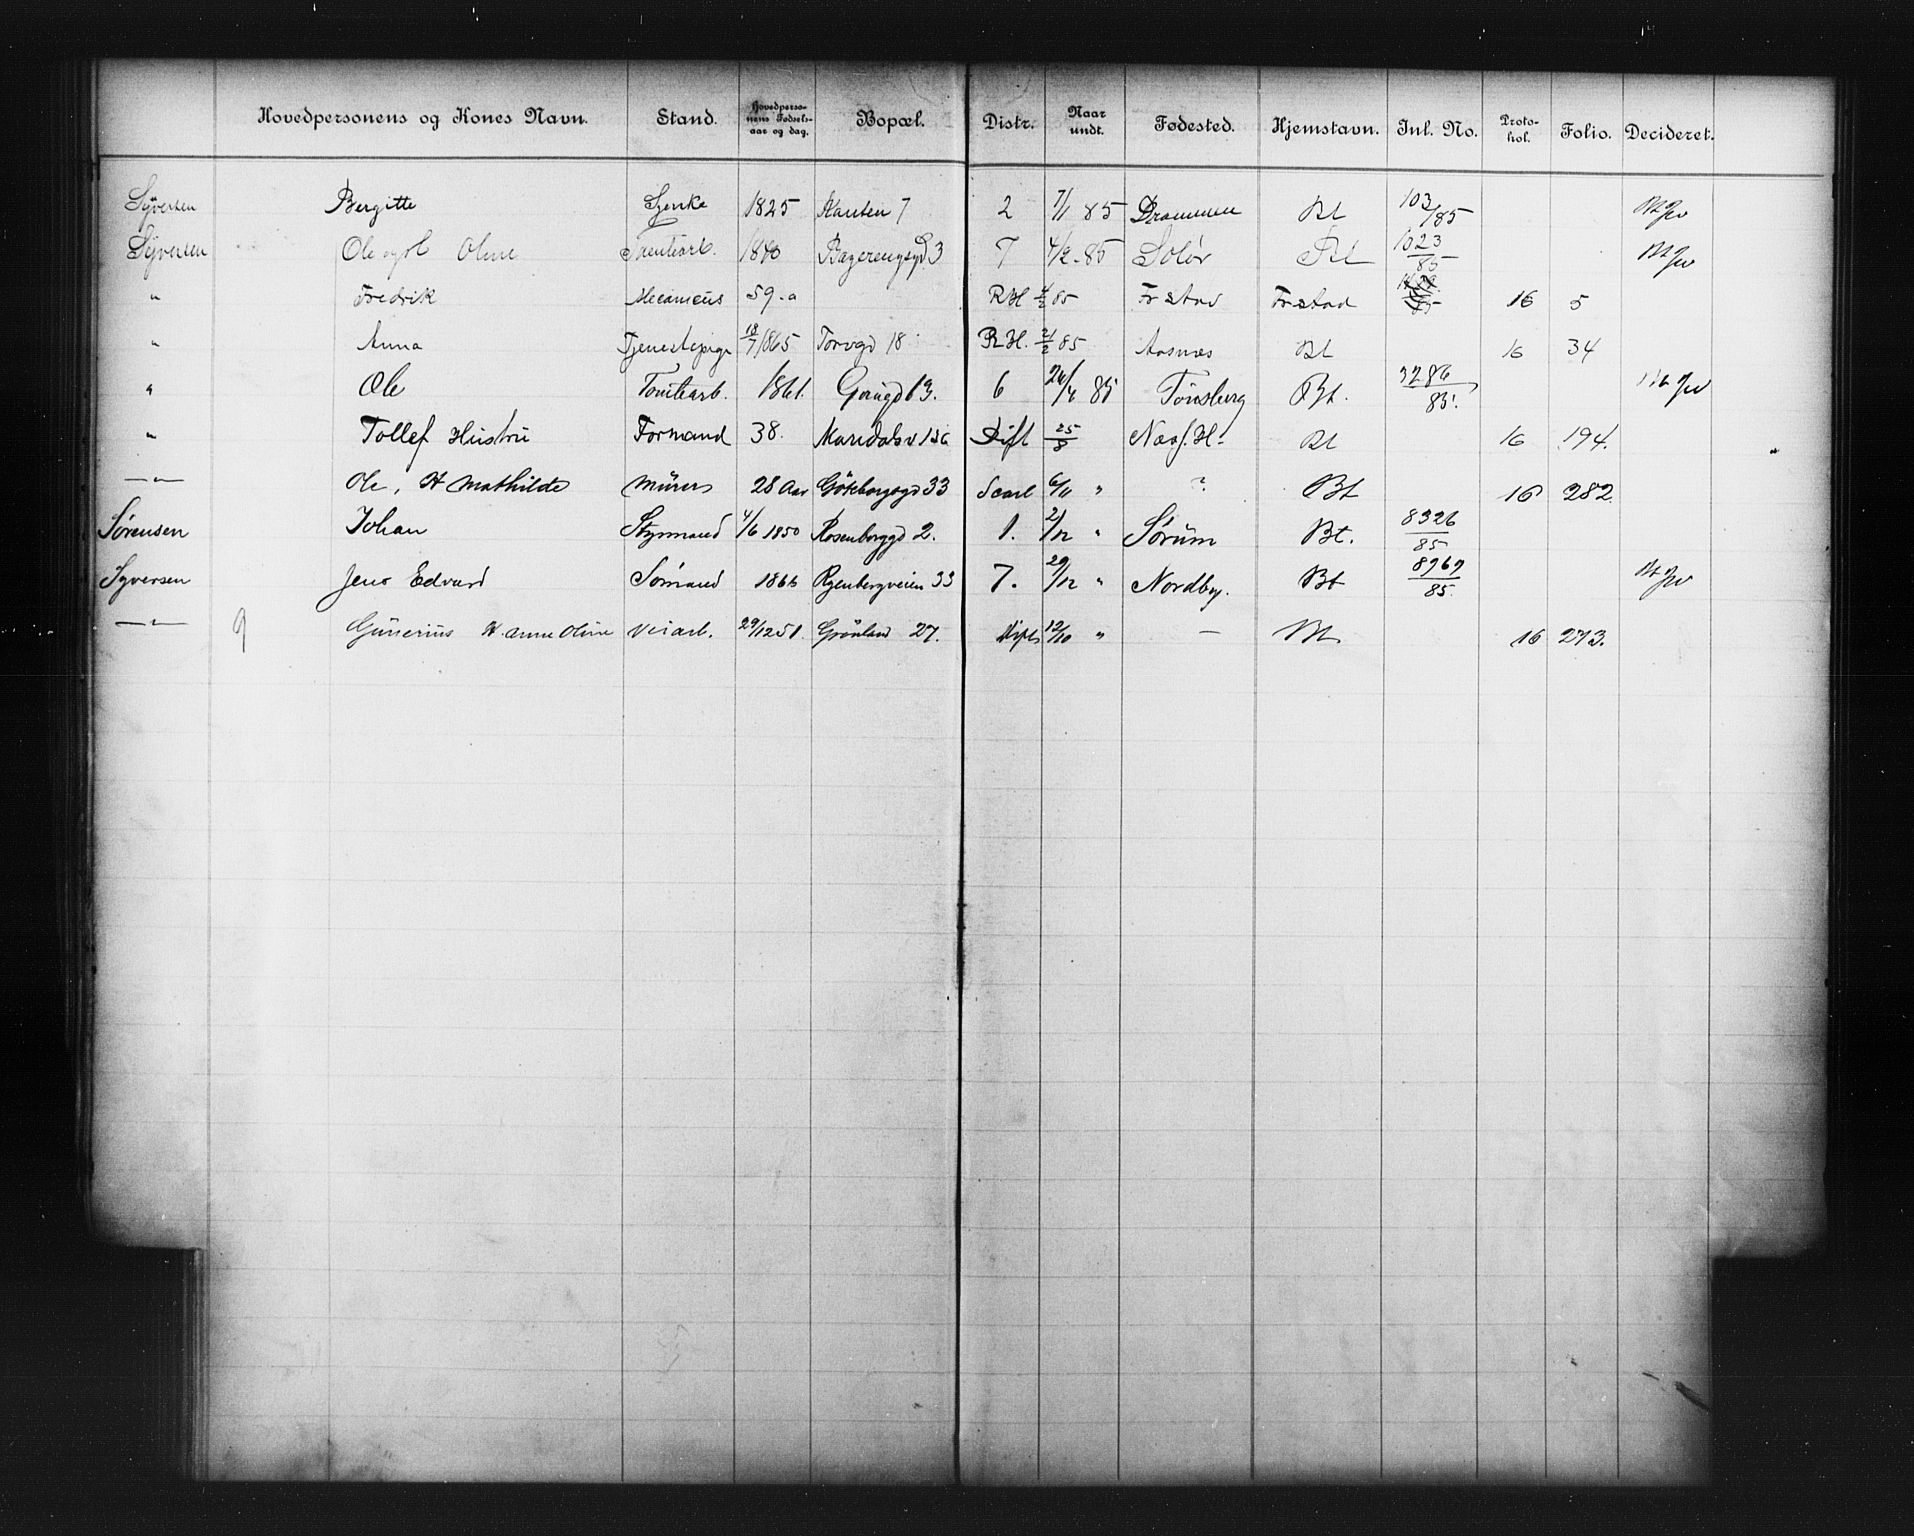 Hovedpersonens og Kones Navn. Stand. Hovedpersonens Fødselsaar og dag. Bopæl. Distr. Naar undt. Fødested. Hjemstavn. Inl. No. Protokol. Folio. Decideret.
Syversen Bergitte Enke 1825 7 2 7/1 85 Drammen Bt 103/85
Syversen Ole Oline 1840 3 7 4/2 - 85 Solør Bt 1023/85
" Fredrik Mecanicus 59 - a R.H 85 Frstad Frstad 16 5
" Anna Tjenestepige 18/7 1865 Torvgd 18 R.H. 21/2 85 Aasnæs Bt 16 34
" Ole Tomtearb. 1861. 6 24/4 85 Tönsberg Bt. 3286/85.
" Tollef Hustru Formand 38. Maridalsv 136 Dift 25/8 Næs. H. Bt 16 194.
—"— Ole, H Mathilde Murer 28 Aar Göteborggd 33 Scarl 6/11 " ? Bt 16 282
Sørensen Johan Styrmand 4/6 1850 Rosenborggd 2. 1. 2/12 " Sörum Bt. 8326/85
Syversen Jens Edvard Sömand 1866 Ryenbergveien 33 7. 29/12 " Nordby. Bt 8969/85.
—"— 9 Gunerius H. Anne Oline Veiarb. 29/12 51. Grönland 27. Dipht 12/10 " — Bt. 16 273.